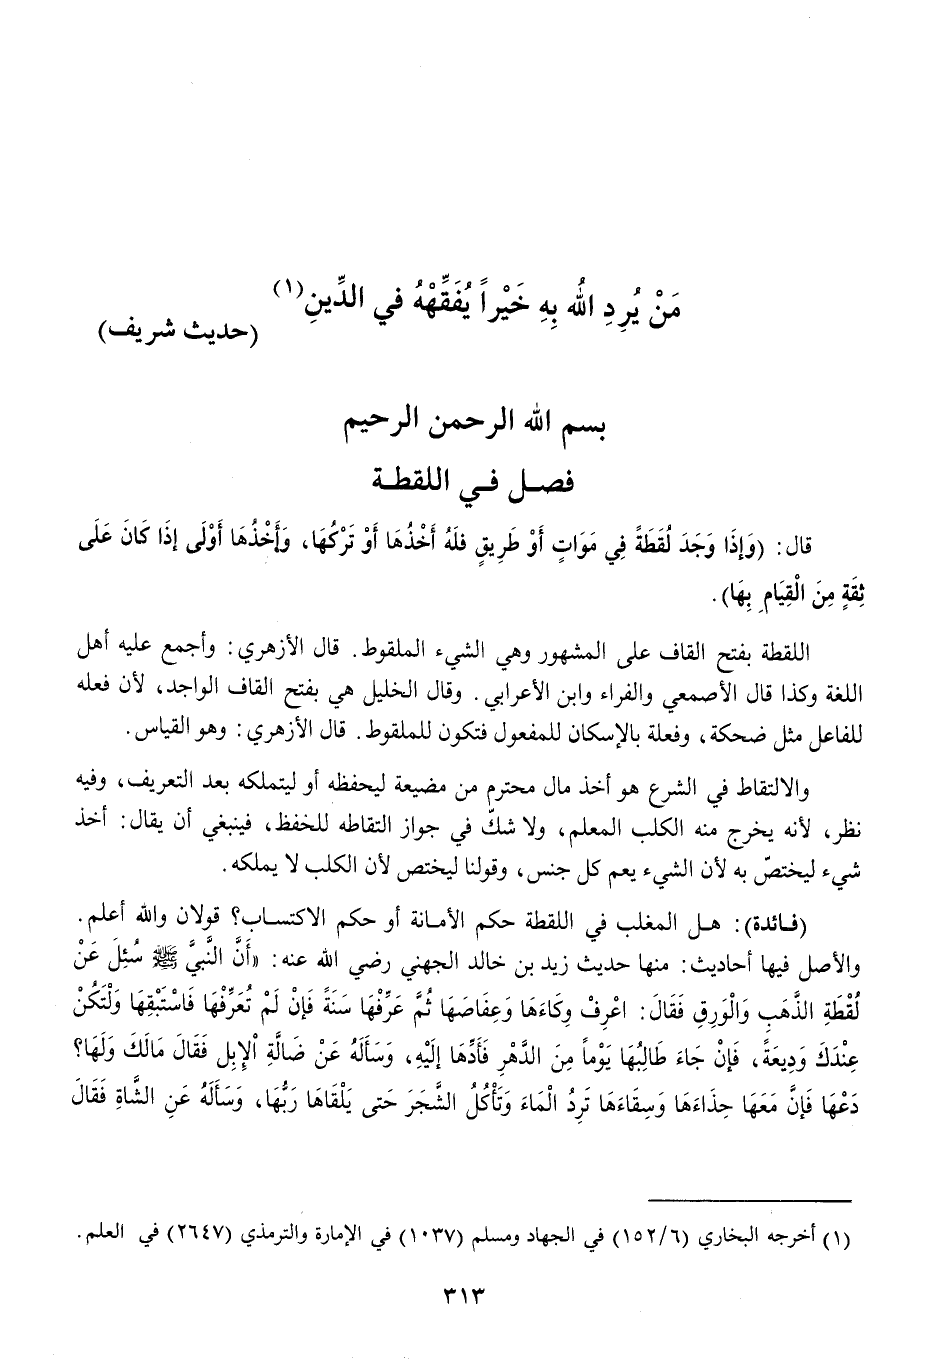 مَنْ يُرِدِ اللهُ بِهِ خَيْراً يُفَقِّهْهُ في الدِّينِ(١)
(حديث شريف)
بسم الله الرحمن الرحيم
فصل في اللقطة
قال: (وَإِذَا وَجَدَ لُقَطَةً فِي مَوَاتٍ أَوْ طَرِيقٍ فلَهُ أَخْذُهَا أَوْ تَرْكُهَا، وَأَخْذُهَا أَوْلَى إِذَا كَانَ عَلَى
ثِقَةٍ مِنَ الْقِيَامِ بِهَا).
اللقطة بفتح القاف على المشهور وهي الشيء الملقوط. قال الأزهري: وأجمع عليه أهل
اللغة وكذا قال الأصمعي والفراء وابن الأعرابي. وقال الخليل هي بفتح القاف الواجد، لأن فعله
للفاعل مثل ضحكة، وفعلة بالإسكان للمفعول فتكون للملقوط. قال الأزهري: وهو القياس.
والالتقاط في الشرع هو أخذ مال محترم من مضيعة ليحفظه أو ليتملكه بعد التعريف، وفيه
نظر، لأنه يخرج منه الكلب المعلم، ولا شكّ في جواز التقاطه للحفظ، فينبغي أن يقال: أخذ
شيء ليختصّ به لأن الشيء يعم كل جنس، وقولنا ليختص لأن الكلب لا يملكه.
(فائدة): هل المغلب في اللقطة حكم الأمانة أو حكم الاكتساب؟ قولان والله أعلم.
والأصل فيها أحاديث: منها حديث زيد بن خالد الجهني رضي الله عنه: «أَنَّ النَّبيَّ ﷺ سُئِلَ عَنْ
لُقْطَةِ الذَّهَبِ وَالْوَرِقِ فَقَالَ: اعْرِفْ وِكَاءَهَا وَعِفَاصَهَا ثُمَّ عَرِّفْهَا سَنَةً فَإِنْ لَمْ تُعَرِّفْهَا فَاسْتَبْقِهَا وَلْتَكُنْ
عِنْدَكَ وَدِيعَةً، فَإِنْ جَاءَ طَالِبُهَا يَوْماً مِنَ الدَّهْرِ فَأَدِّهَا إِلَيْهِ، وَسَأَلَهُ عَنْ ضَالَّةِ الْإِبِل فَقَالَ مَالَكَ وَلَهَا؟
دَعْهَا فَإِنَّ مَعَهَا حِذَاءَهَا وَسِقَاءَهَا تَرِدُ الْمَاءَ وَتَأْكُلُ الشَّجَرَ حَتى يَلْقَاهَا رَبُّهَا، وَسَأَلَهُ عَنِ الشَّاةِ فَقَالَ
(١) أخرجه البخاري (٦/ ١٥٢) في الجهاد ومسلم (١٠٣٧) في الإمارة والترمذي (٢٦٤٧) في العلم.
٣١٣